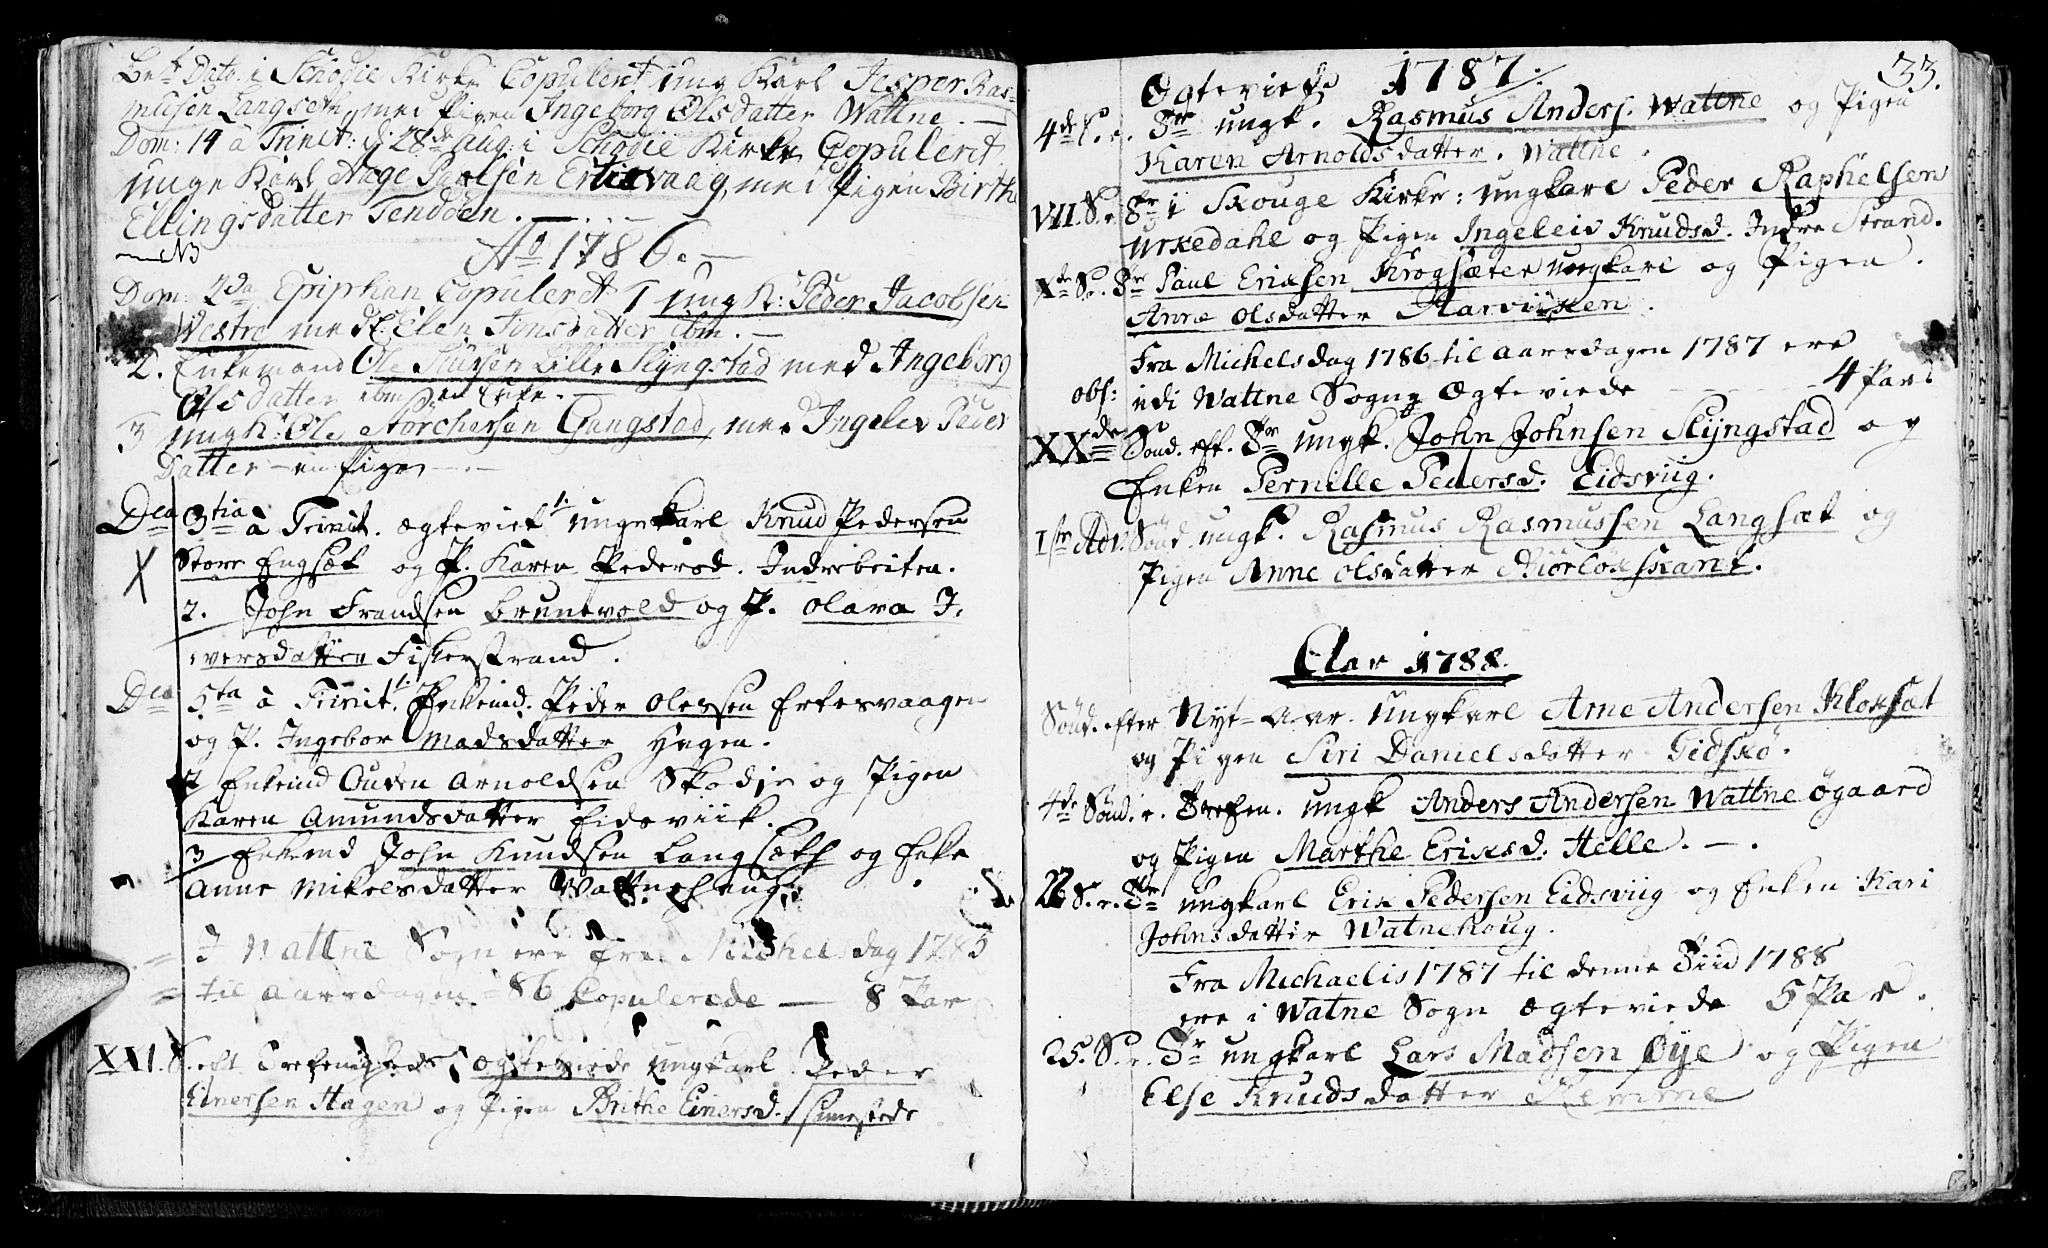 Dato i Schodie Kirke Copuleret ung Karl Jesper Ras=
musen Langseth, med Pigen Ingeborg Olsdatter Wattne. —
Dom: 14 à Trinit: d 28de Aug: i Schodie Kirke Copuleret
unge Karl Aage med Pigen Birthe
Ellingsdatter Tendöen. —
NB
Ao 1786. —
Dom: 2da Epiphan Copuleret 1 ung K: Peder Jacobsen
Westre med Elen Jonsdatter ibm. —
2. Enkemand Ole Lille Slyngstad med Ingeborg
Olsdatter ibm en Enke. —
3 ung K: Ole Gangstad, med Ingelev Peders
Datter — en Pige —
Dca 3tia à Trinit. ægteviet 1. ungekarl Knud Pedersen
Store Engsæt og P. Karen Pedersd. Indrebreiten.
2. John Frandsen Brunevold og P. Olava I.
versdatter Fiskerstrand.
Dca 5ta à Trinit. 1. Enkemd. Peder Olessen Erkesvaagen
og P. Ingebor Madsdatter Hagen.
2 Enkemd Outen Arnoldsen Skodje og Pigen
Karen Amundsdatter Eidsviik.
3 Enkemd John Knudsen Langsæth og Enke
Anne Mikelsdatter Wattnehaug.
I Wattne Sogn ere fra Michels dag 1785
til aarsdagen = 86 Kopulerede — 8 Par
XXI. S. eft. Trefoldigheds ægteviede ungkarl. Peder
Einersen Hagen og Pigen Brithe Einersd.
33.
Ægteviede 1787.
4de S. e. Tr ungk. Rasmus Anders. Wattne og Pigen
Karen Arnoldsdatter. Wattne.
VII. S. e. Tr i Skouge Kirke: ungkarl Peder Raphelsen
Urkedahl og Pigen Ingeleiv Knudsd. Indre Strand.
Xde S. e. Tr Paul Eriksen Krogsæter ungkarl og Pigen.
Anne Olsdatter Aarviken.
Fra Michelsdag 1786 til aarsdagen 1787 ere
obs: udi Wattne Sogn Ægteviede — 4 Par
XXde Sönd. eft. Tr ungk. John Johnsen Slyngstad og
Enken Pernille Pedersd. Eidsviig.
Iste Adv. Sönd ungk. Rasmus Rasmussen Langsæt og
Pigen Anne Olsdatter
Aar 1788.
Sönd. efter Nyt=Aar. Ungkarl Arne Andersen Kloksæt
og Pigen Siri Danielsdatter Gidskö.
4de Sönd. e. Trefen. ungk Anders Andersen Wattne øgaard
og Pigen Marthe Eriksd. Helle. —.
22 S. e. Tr ungkarl Erik Pedersen Eidsviig og Enken Kari
Johnsdatter Watnehoug.
Fra Michaelis 1787 til denne Tiid 1788
ere i Watne Sogn ægteviede 5 Par.
25. S. e. Tr ungkarl Lars Madsen Øye og Pigen
Else Knudsdatter